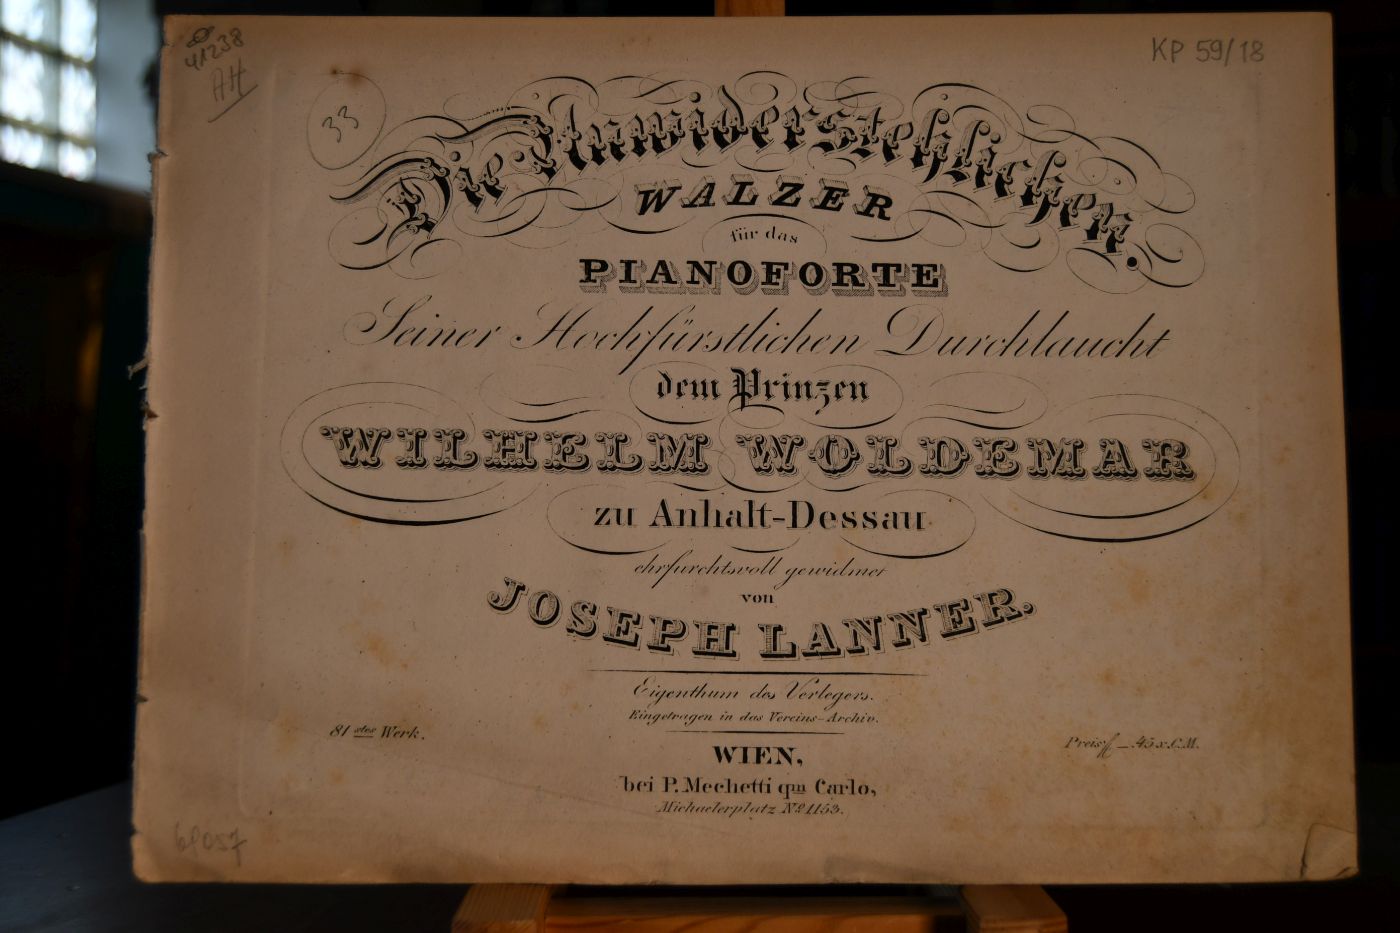 41238
AH
KP 59/18
33
Die Unwiderstehlichen.
WALZER
für das
PIANOFORTE
Seiner Hochfürstlichen Durchlaucht
dem Prinzen
WILHELM WOLDEMAR
zu Anhalt-Dessau
ehrfurchtsvoll gewidmet
von
JOSEPH LANNER.
Eigenthum des Verlegers.
Eingetragen in das Vereins-Archiv.
81stes Werk.
Preis f _ 45 x C.M.
WIEN,
bei P. Mechetti qm Carlo,
Michaelerplatz No 1153.